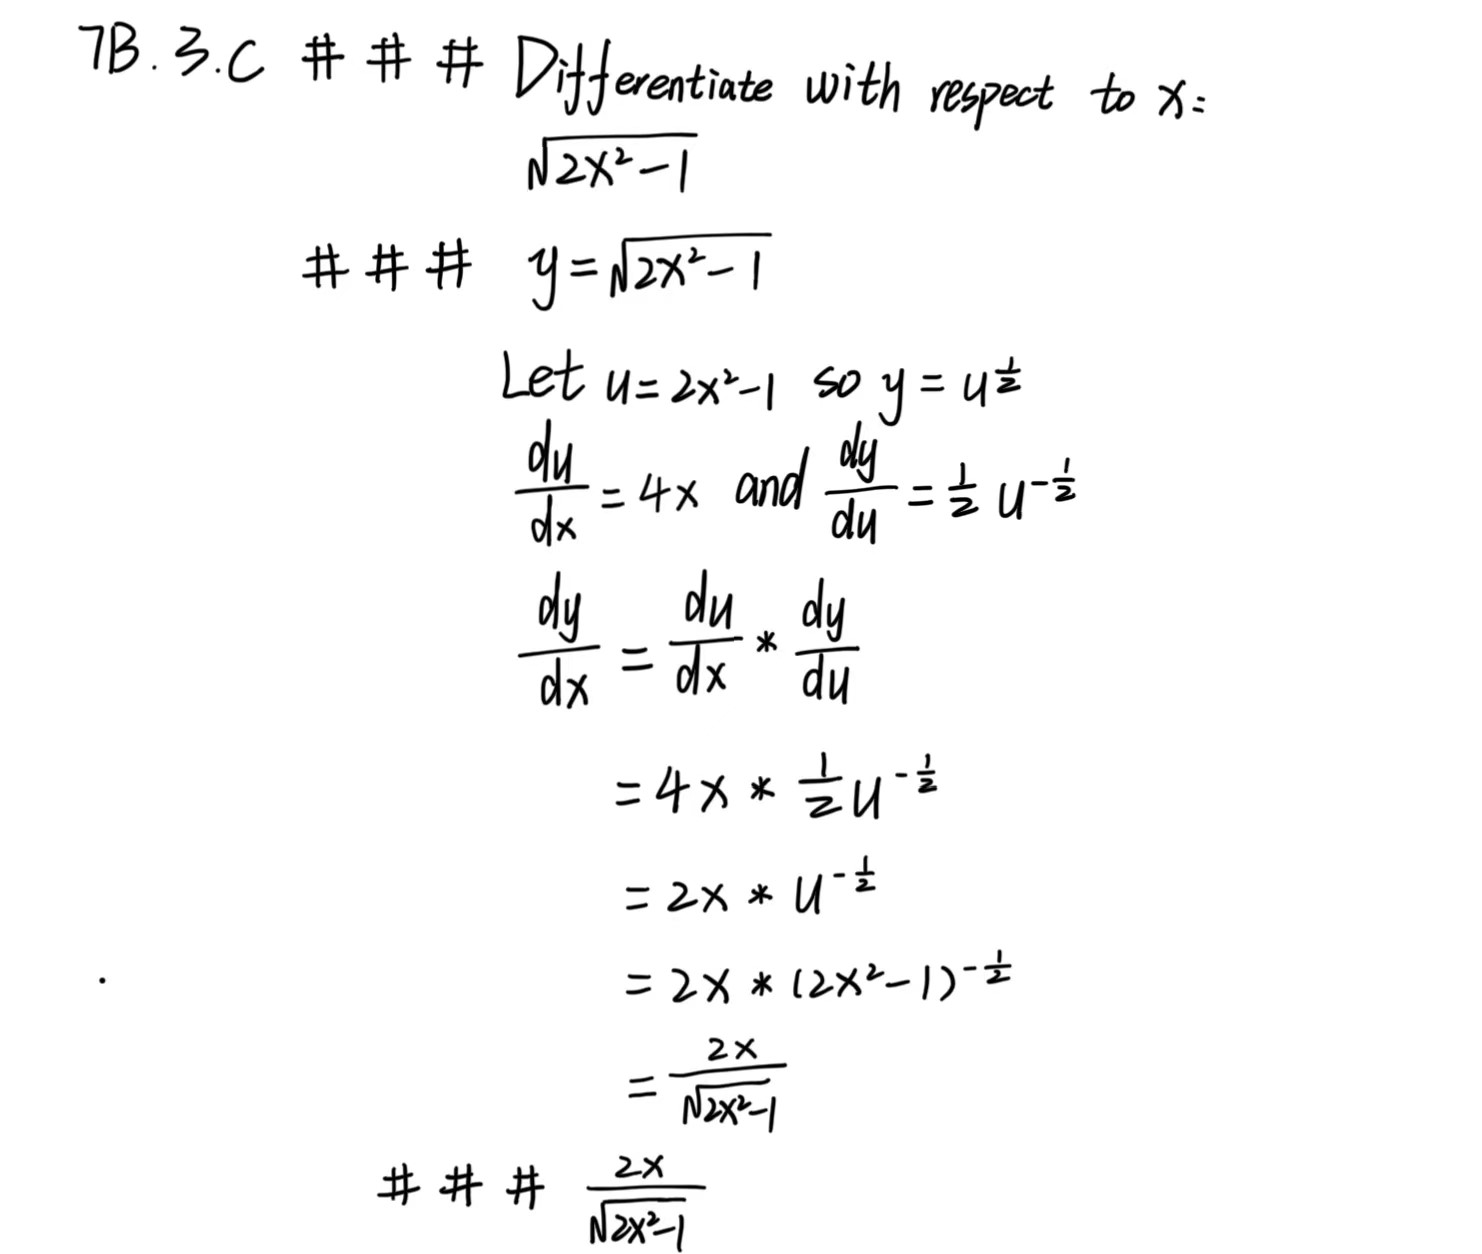 7B.3.C # # # Differentiate with respect to x:
√(2x²-1)
# # # y=√(2x²-1)
Let u=2x²-1 so y=u^(1/2)
du/dx=4x and dy/du=1/2 u^(-1/2)
dy/dx=du/dx*dy/du
=4x*1/2 u^(-1/2)
=2x*u^(-1/2)
=2x*(2x²-1)^(-1/2)
=2x/√(2x²-1)
# # # 2x/√(2x²-1)